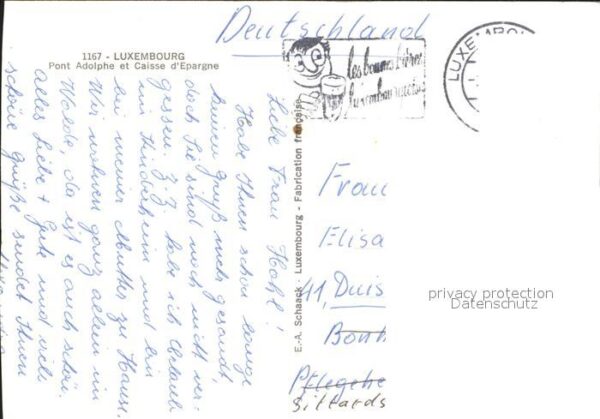 Deutschland
1167 - LUXEMBOURG
Pont Adolphe et Caisse d'Epargne
Les bonnes bières
luxembourgeoises
LUXEMBO
E.-A. Schaack - Luxembourg - Fabrication française
Liebe Frau Hohl!
Habe Ihnen schon lange
keinen Gruß mehr gesandt,
doch Sie sind noch nicht ver-
gessen. Z. Z. habe ich Urlaub
im Kinderheim und bin
bei meiner Mutter zu Hause.
Wir wohnen ganz allein im
Walde, da ist es auch schön.
Alles Liebe + Gute und viele
schöne Grüße sendet Ihnen
Frau
Elisa
41, Duis
Bonh
Pflegehe
Sittards
privacy protection
Datenschutz